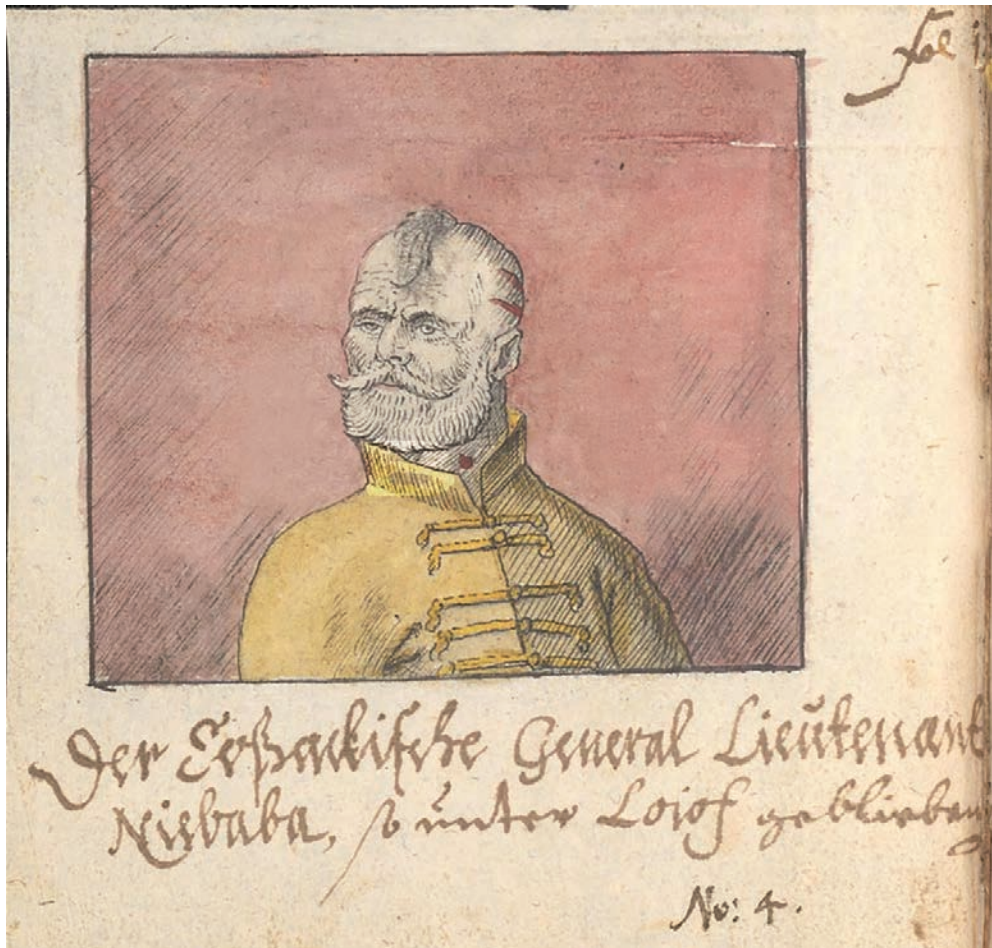 fol
Der Coßackische General Lieutenant
Niebaba, so unter Loiof geblieben
No: 4.